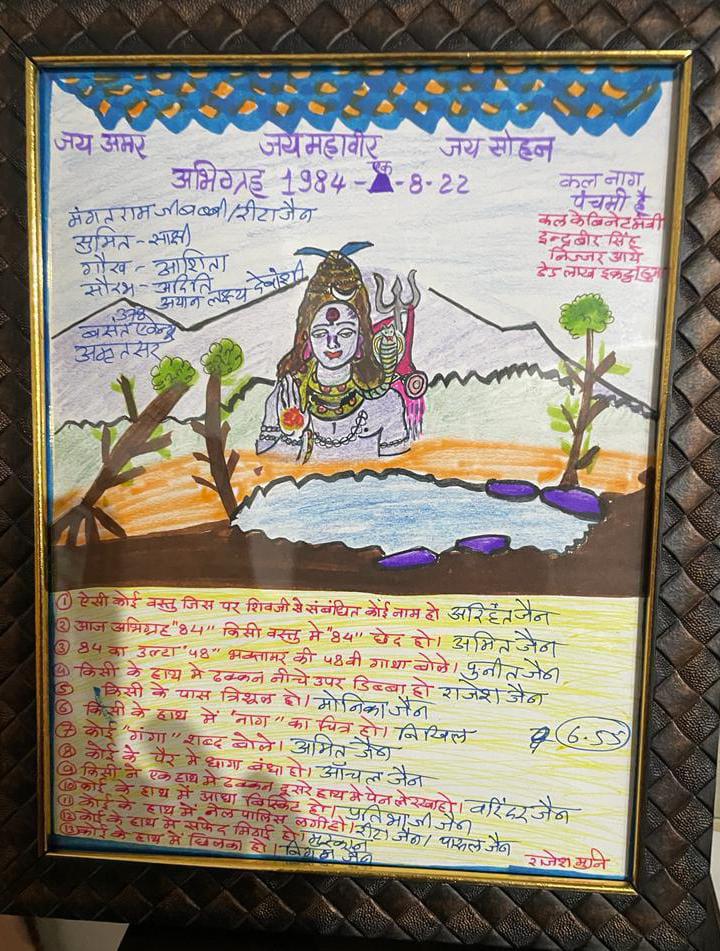 जय अमर जय महावीर जय सोहन
अभिग्रह 1984 - एक - 8-22
कल नाग
पंचमी है
कल केबिनेट मंत्री
इन्द्रबीर सिंह
निज्जर आये
डेढ लाख इकट्ठा हुआ
मंगतराम जी बब्बी/रीटा जैन
सुमित - साक्षी
गौरव - आशिता
सौरभ - अदिति
अयान लक्ष्य देवांशी
अमृतसर
① ऐसी कोई वस्तु जिस पर शिवजी से संबंधित कोई नाम हो अरिहंत जैन
② आज अभिग्रह "84" किसी वस्तु में "84" छेद हो। अमित जैन
③ 84 का उल्टा "48" भक्तामर की 48वी गाथा बोले। पुनीत जैन
④ किसी के हाथ में ढक्कन नीचे उपर डिब्बा हो राजेश जैन
⑤ किसी के पास त्रिशूल हो। मोनिका जैन
⑥ किसी के हाथ में "नाग" का चित्र हो। निखिल
⑦ कोई "गंगा" शब्द बोले। अमित जैन
6.55
⑧ कोई के पैर में धागा बंधा हो। आँचल जैन
⑨ किसी ने एक हाथ में ढक्कन दूसरे हाथ में पेन ले रखा हो। वरिंदर जैन
⑩ कोई के हाथ में आधा बिस्किट हो। प्रतिभा जी जैन
⑪ कोई के हाथ में नेल पालिस लगी हो। रीटा जैन/पारूल जैन
⑫ कोई के हाथ में सफेद मिठाई हो। मुस्कान
⑬ कोई के हाथ में छिलका हो। जैन
राजेश मुनि